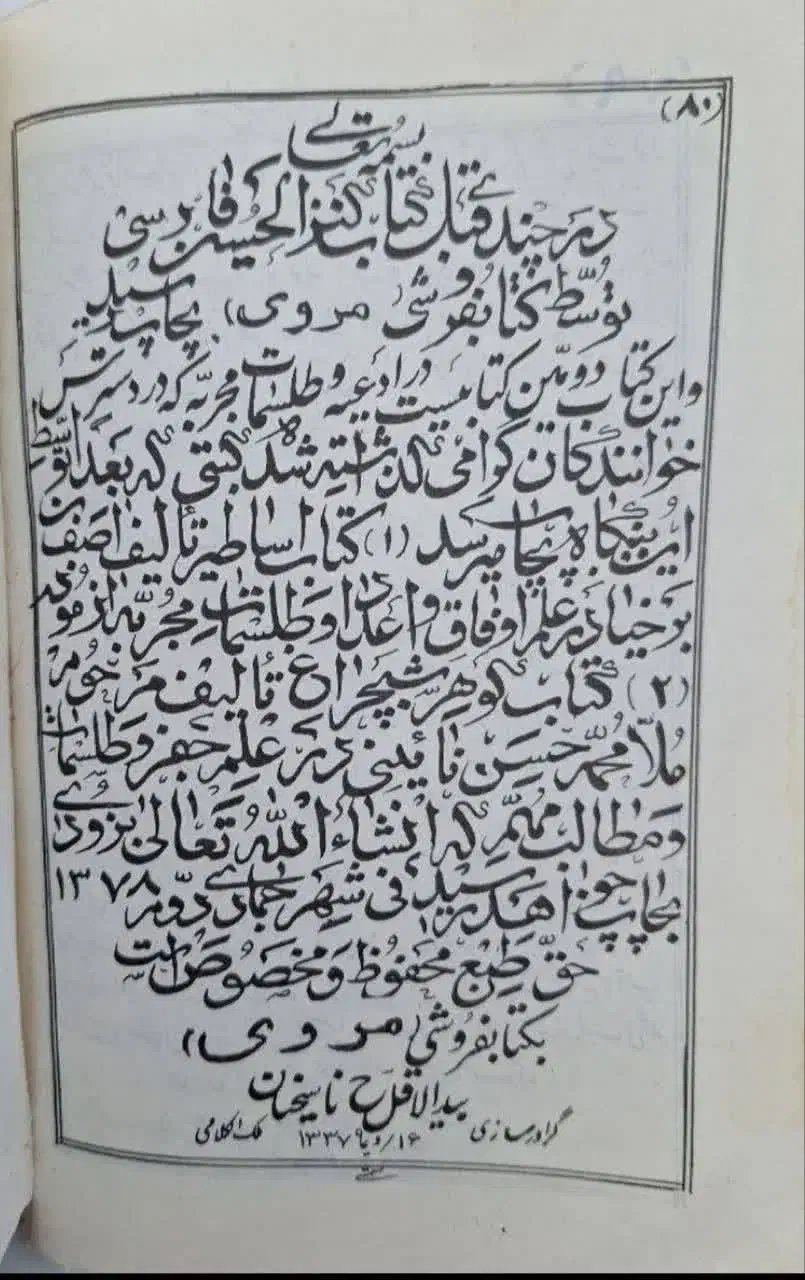 (۸۰)
بسمه تعالی
در چندی قبل کتاب کنز الحسین فارسی
توسط کتابفروشی (مروی) بچاپ رسید
و این کتاب دومین کتابیست در ادعیه و طلسمات مجربه که در دسترس
خوانندگان گرامی گذاشته شد کتبی که بعداً توسط
این بنگاه بچاپ میرسد (۱) کتاب اساطیر تألیف اصف بن
برخیا در علم اوفاق و اعداد و طلسمات مجربه ازموده
(۲) کتاب گوهر شبچراغ تألیف مرحوم
ملا محمد حسن نائینی در علم جفر و طلسمات
و مطالب مهم که انشاء الله تعالی بزودی
بچاپ خواهد رسید فی شهر جمادی دوم ۱۳۷۸
حق طبع محفوظ و مخصوص است
بکتابفروشی (مروی)
بید الاقل ح ناسیخیان
گراورسازی ۱۶/دیماه ۱۳۳۷